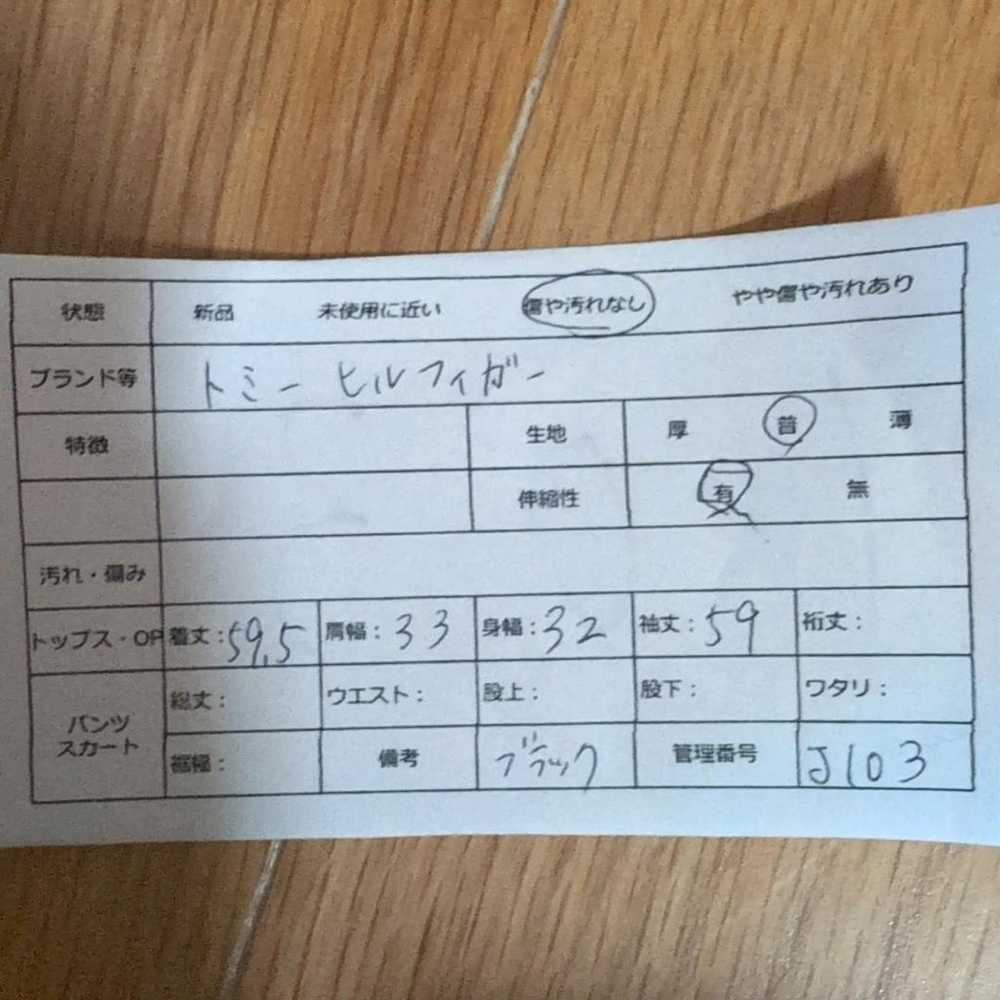 状態 新品 未使用に近い 傷や汚れなし やや傷や汚れあり
ブランド等 トミーヒルフィガー
特徴 生地 厚 普 薄
伸縮性 有 無
汚れ・傷み
トップス・OP 着丈：59.5 肩幅：33 身幅：32 袖丈：59 裄丈：
パンツ 総丈： ウエスト： 股上： 股下： ワタリ：
スカート
裾幅： 備考 ブラック 管理番号 J103